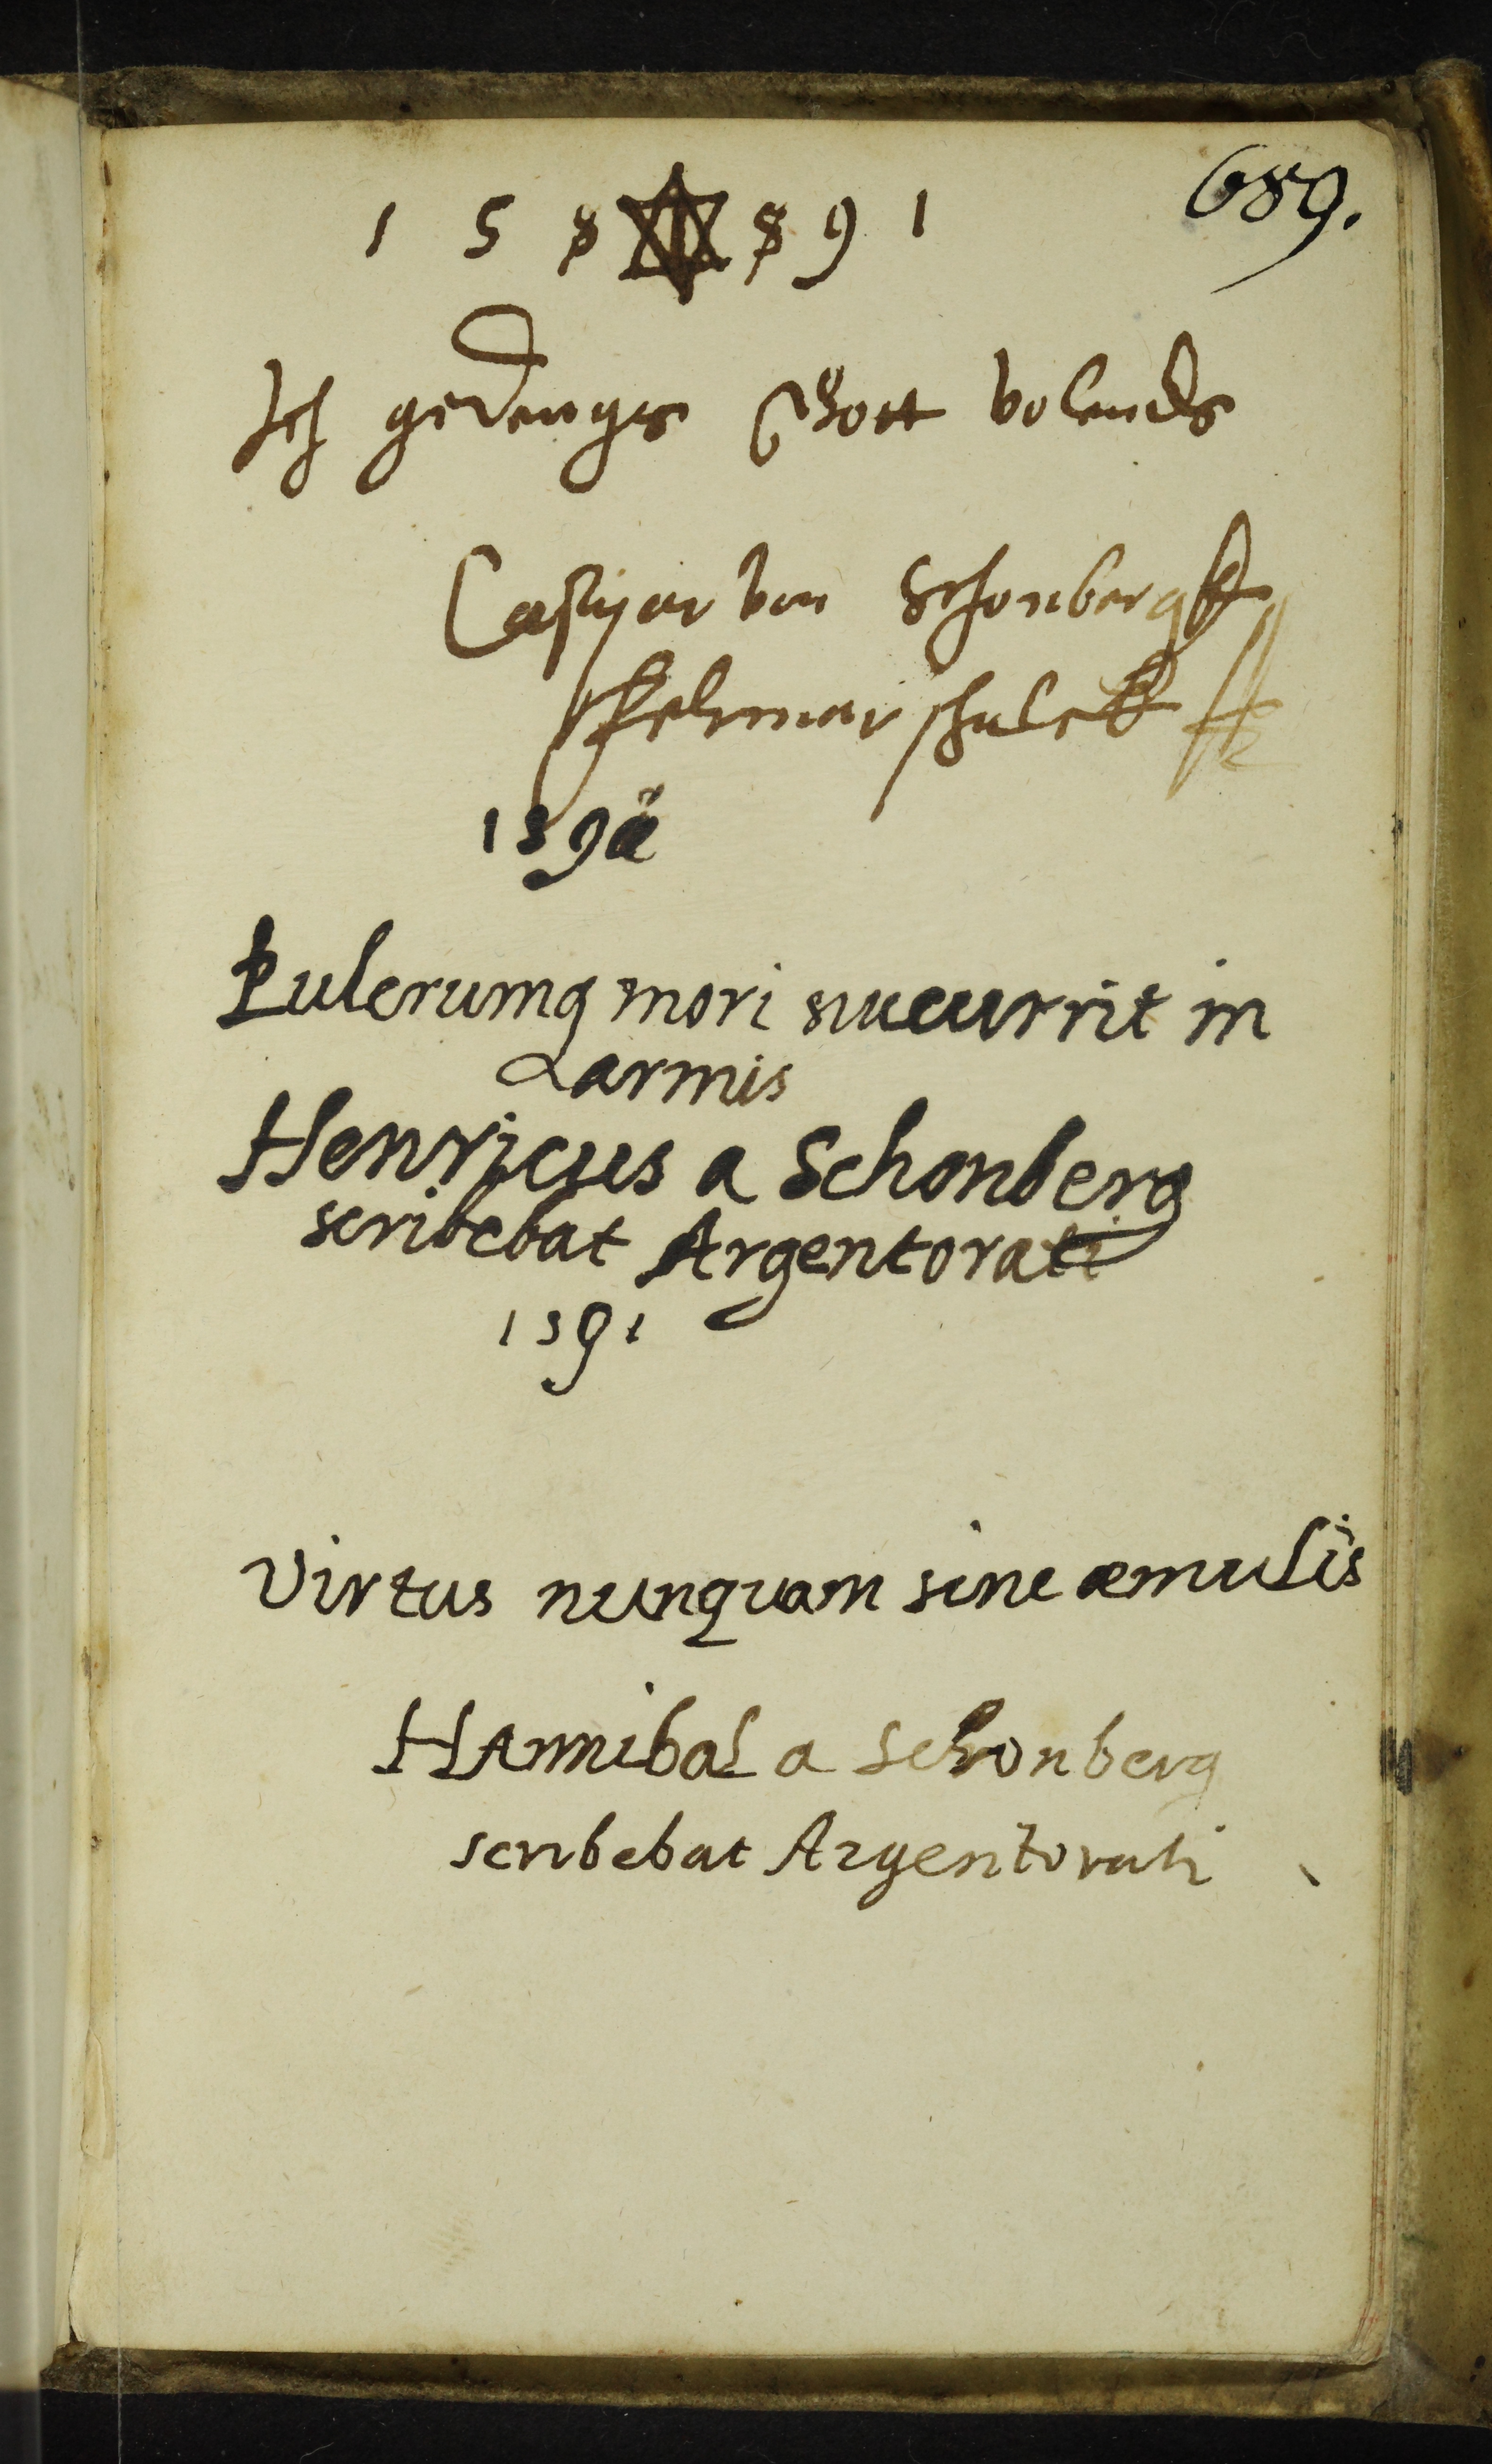 689.
1 5 8 8 9 1
Ich gedenges Gott volends
Casspar von Schonbergk
Felmarschalck
159
Pulcrumq mori succurrit in
armis
Henricus a Schonberg
scribebat Argentorati
1591
Virtus nunquam sine æmulis
HAnnibal a Schonberg
scribebat Argentorati